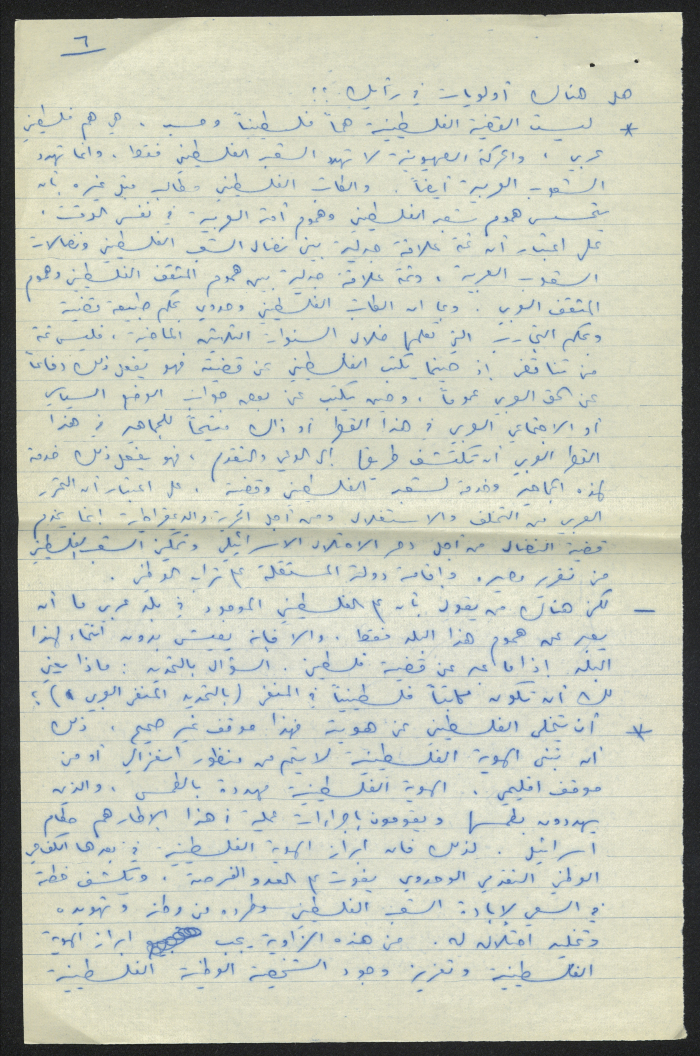 ٦
هل هناك أولويات في رأيك ؟؟
* ليست القضية الفلسطينية هماً فلسطينياً وحسب ، هي هم فلسطيني
عربي ، والحركة الصهيونية لا تهدد الشعب الفلسطيني فقط ، وانما تهدد
الشعوب العربية أيضاً . والكاتب الفلسطيني مطالب قبل غيره بأن
يتحسس هموم شعبه الفلسطيني وهموم أمته العربية في نفس الوقت ،
على اعتبار أن ثمة علاقة جدلية بين نضال الشعب الفلسطيني ونضالات
الشعوب العربية ، وثمة علاقة جدلية بين هموم المثقف الفلسطيني وهموم
المثقف العربي . وبما ان الكاتب الفلسطيني وحدوي بحكم طبيعة قضيته
وبحكم التجارب التي تعلمها خلال السنوات الثلاثين الماضية ، فليس ثمة
من تناقض إذ حينما يكتب الفلسطيني عن قضيته فهو يفعل ذلك دفاعاً
عن الحق العربي عموماً ، وحين يكتب عن بعض جوانب الوضع السياسي
أو الاجتماعي العربي في هذا القطر أو ذاك متيحاً للجماهير في هذا
القطر العربي أن تكتشف طريقها الى الوعي والتقدم ، فهو يفعل ذلك خدمة
لهذه الجماهير وخدمة لشعبه الفلسطيني وقضيته ، على اعتبار أن التحرر
العربي من التخلف والاستغلال ومن أجل الحرية والديمقراطية إنما يخدم
قضية النضال من أجل دحر الاحتلال الاسرائيلي وتمكين الشعب الفلسطيني
من تقرير مصيره وإقامة دولته المستقلة على ترابه الوطني .
— لكن هناك من يقول بأن على الفلسطيني الموجود في بلد عربي ما أن
يعبر عن هموم هذا البلد فقط ، والا فإنه يعيش بدون انتماء لهذا
البلد إذا ما عبر عن قضية فلسطين . السؤال بالتحديد : ماذا يعني
لك أن تكون كاتباً فلسطينياً في المنفى (بالتحديد المنفى العربي) ؟
* أن يتخلى الفلسطيني عن هويته فهذا موقف غير صحيح ، ذلك
أن تبني الهوية الفلسطينية لا يتم من منظور انعزالي أو من
موقف اقليمي . الهوية الفلسطينية مهددة بالطمس ، والذين
يهددون بطمسها ويقومون باجراءات عملية في هذا الإطار هم حكام
اسرائيل . لذلك فان ابراز الهوية الفلسطينية في بعدها الكفاحي
الوطني التقدمي الوحدوي يفوت على العدو الفرصة ، ويكشف خطته
في السعي لإبادة الشعب الفلسطيني وطرده من وطنه وتهويده
احتلاله له . من هذه الزاوية يجب ابراز الهوية
الفلسطينية وتعزيز وجود الشخصية الوطنية الفلسطينية